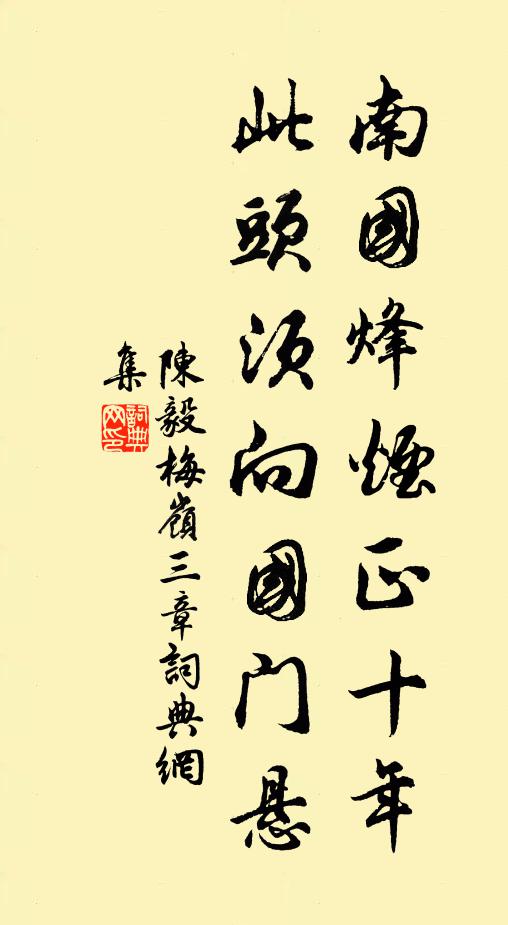 南國烽煙正十年
此頭須向國門悬
陳毅梅嶺三章詞典網
集
詞典网印